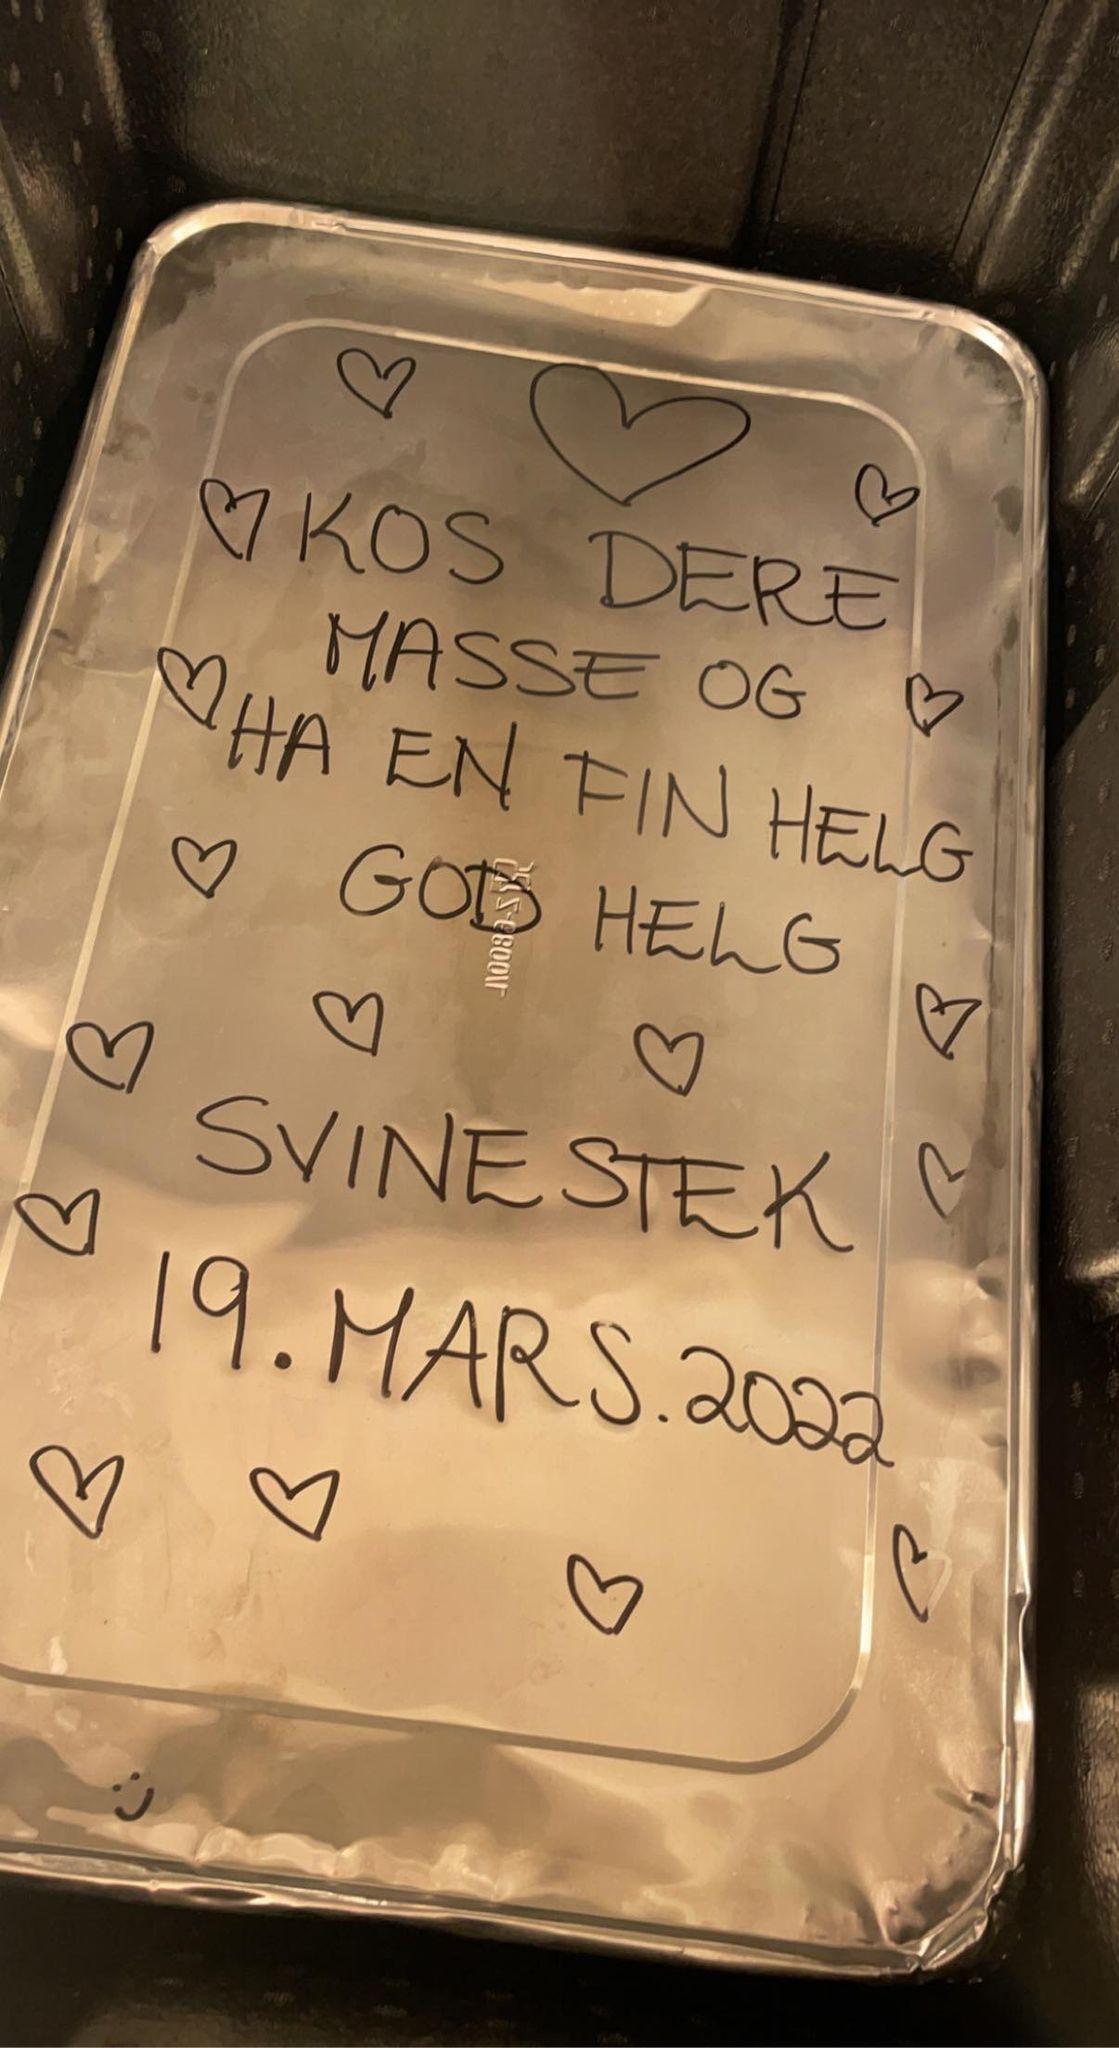 KOS DERE
MASSE OG
HA EN FIN HELG
GOD HELG
SVINESTEK
19. MARS. 2022